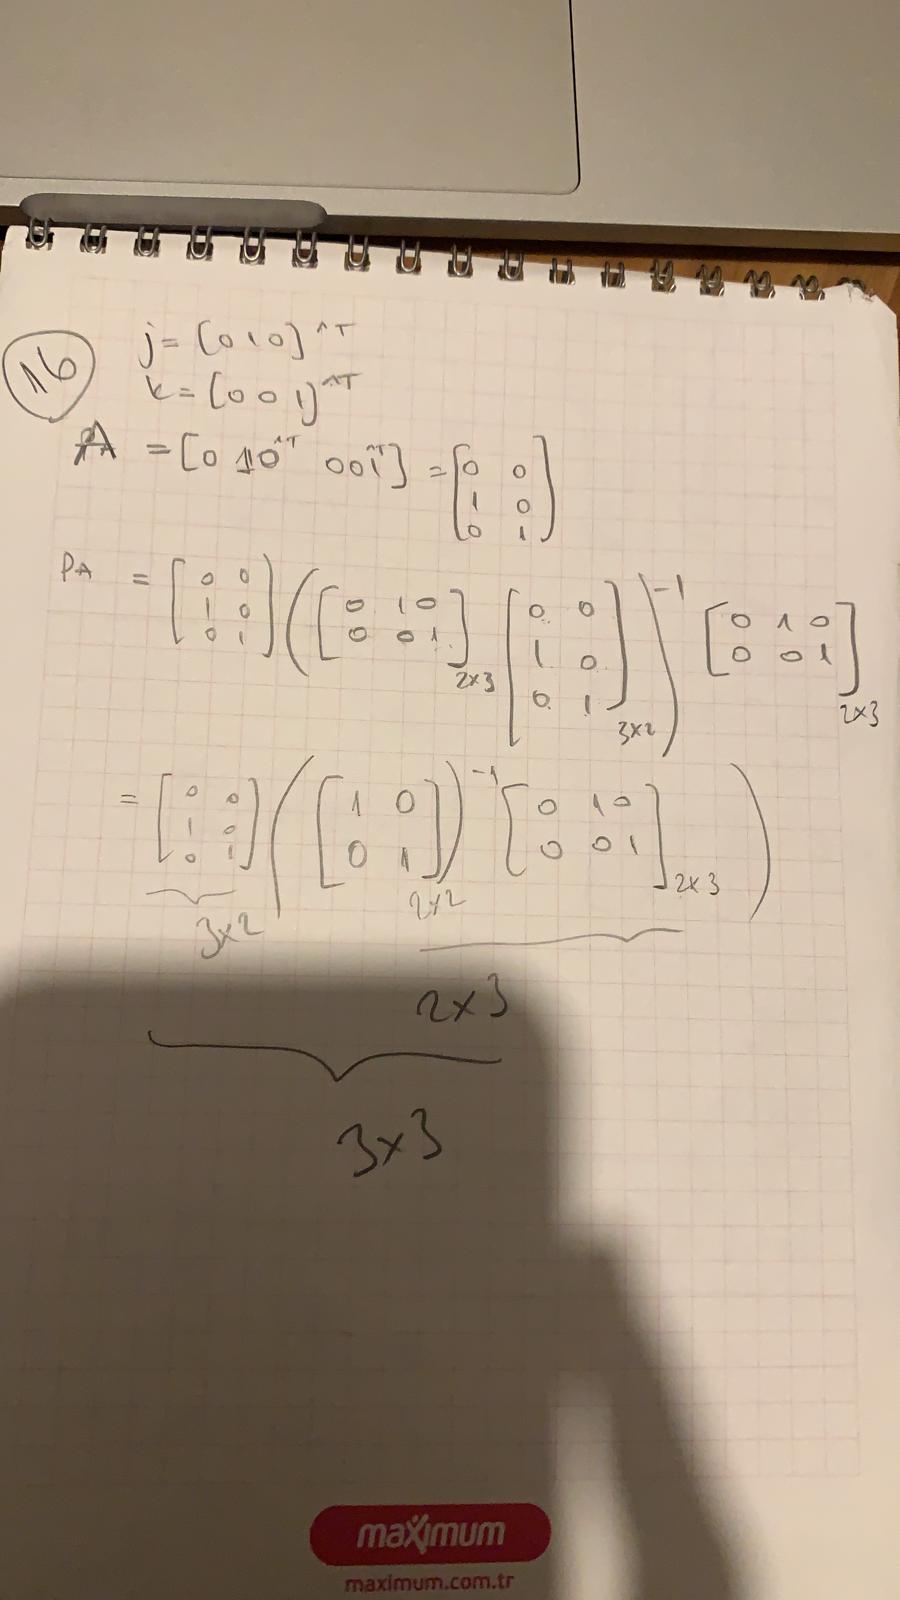 16
j = [0 1 0]^T
k = [0 0 1]^T
A = [0 1 0^T 0 0 1^T] = [0 0
1 0
0 1]
PA = [0 0
1 0
0 1] ([0 1 0
0 0 1]2x3 [0 0
1 0
0 1]3x2)^-1 [0 1 0
0 0 1]2x3
= [0 0
1 0
0 1] (([1 0
0 1]2x2)^-1 [0 1 0
0 0 1]2x3)
3x2
2x3
3x3
maximum
maximum.com.tr